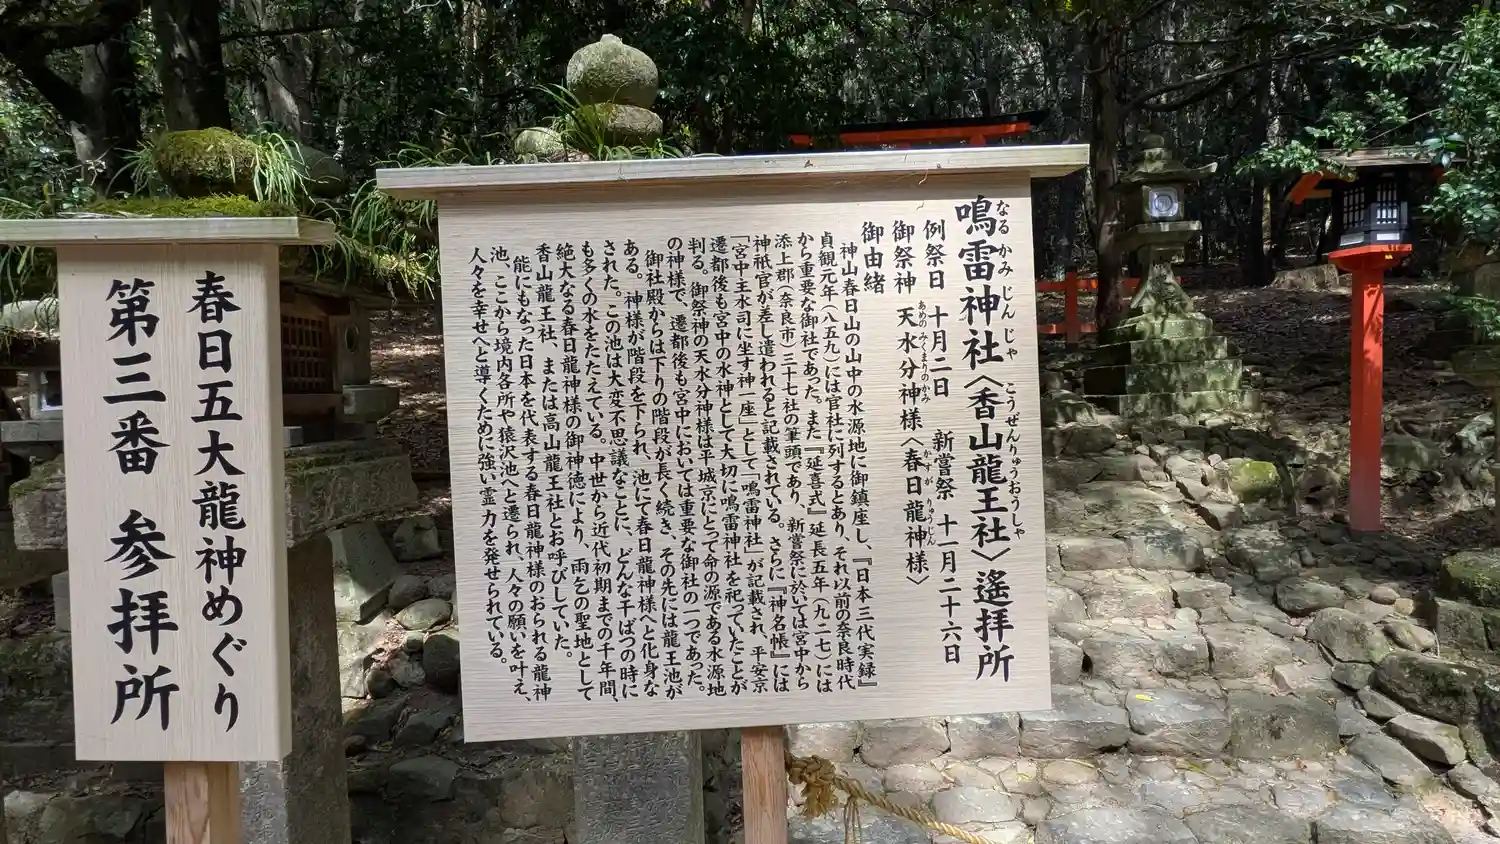 春日五大龍神めぐり
第三番 参拝所
鳴雷神社〈香山龍王社〉遙拝所
なるかみじんじゃ こうぜんりゅうおうしゃ
例祭日 十月二日 新嘗祭 十一月二十六日
御祭神 天水分神様〈春日龍神様〉
あめのみくまりのかみ かすがりゅうじん
御由緒
神山春日山の山中の水源地に御鎮座し、『日本三代実録』
貞観元年(八五九)には官社に列するとあり、それ以前の奈良時代
から重要な御社であった。また『延喜式』延長五年(九二七)には
添上郡(奈良市)三十七社の筆頭であり、新嘗祭に於いては宮中から
神祇官が差し遣われると記載されている。さらに『神名帳』には
「宮中主水司に坐す神一座」として「鳴雷神社」が記載され、平安京
遷都後も宮中の水神として大切に鳴雷神社を祀っていたことが
判る。御祭神の天水分神様は平城京にとって命の源である水源地
の神様で、遷都後も宮中においては重要な御社の一つであった。
御社殿からは下りの階段が長く続き、その先には龍王池が
ある。神様が階段を下られ、池にて春日龍神様へと化身な
された。この池は大変不思議なことに、どんな干ばつの時に
も多くの水をたたえている。中世から近代初期までの千年間、
絶大なる春日龍神様の御神徳により、雨乞の聖地として
香山龍王社、または高山龍王社とお呼びしていた。
能にもなった日本を代表する春日龍神様のおられる龍神
池。ここから境内各所や猿沢池へと遷られ、人々の願いを叶え、
人々を幸せへと導くために強い霊力を発せられている。